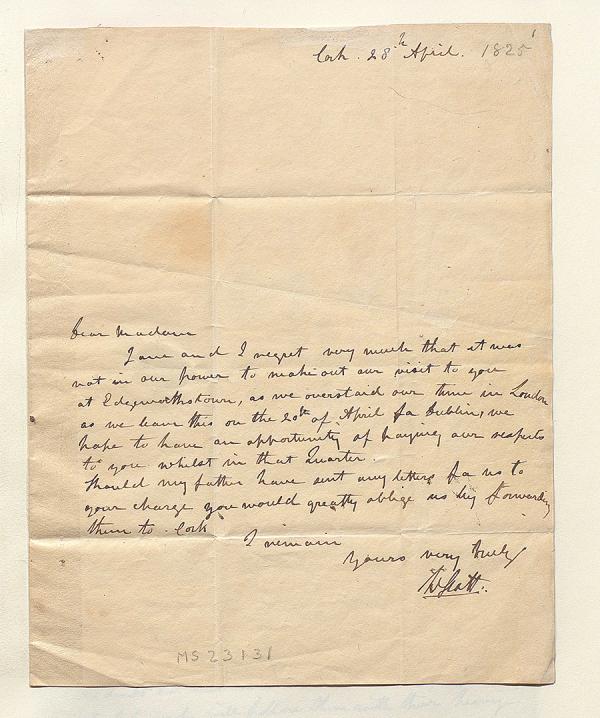 Cork. 28th April. 1825
Dear Madam
Jane and I regret very much that it was
not in our power to make out our visit to you
at Edgeworthstown, as we overstaid our time in London
as we leave this on the 20th of April for Dublin, we
hope to have an opportunity of paying our respects
to you whilst in that Quarter.
Should my father have sent any letters for us to
your charge you would greatly oblige us by forwarding
them to Cork
I remain
yours very truly
W Scott.
MS 23131